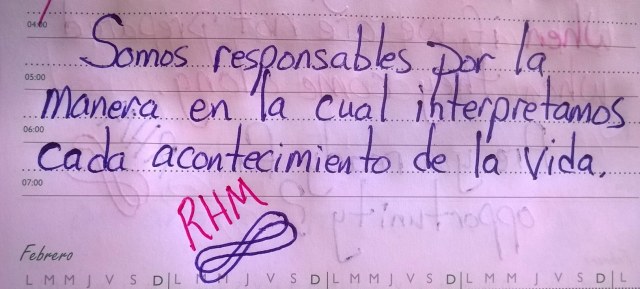 04:00
Somos responsables por la
05:00
manera en la cual interpretamos
06:00
cada acontecimiento de la vida.
07:00
RHM
Febrero
L M M J V S D L M M J V S D L M M J V S D L M M J V S D L